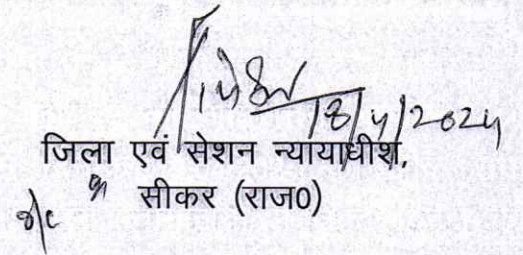 18/4/2024
जिला एवं सेशन न्यायाधीश,
सीकर (राज0)